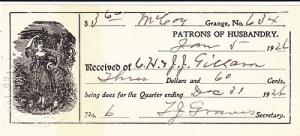 $3.60 McCoy Grange, No. 634
PATRONS OF HUSBANDRY.
Jan 5 1926
Received of C.H. & J.J. Gillam
Three Dollars and 60 Cents,
being dues for the Quarter ending Dec 31 1926
No. 6 Secretary.